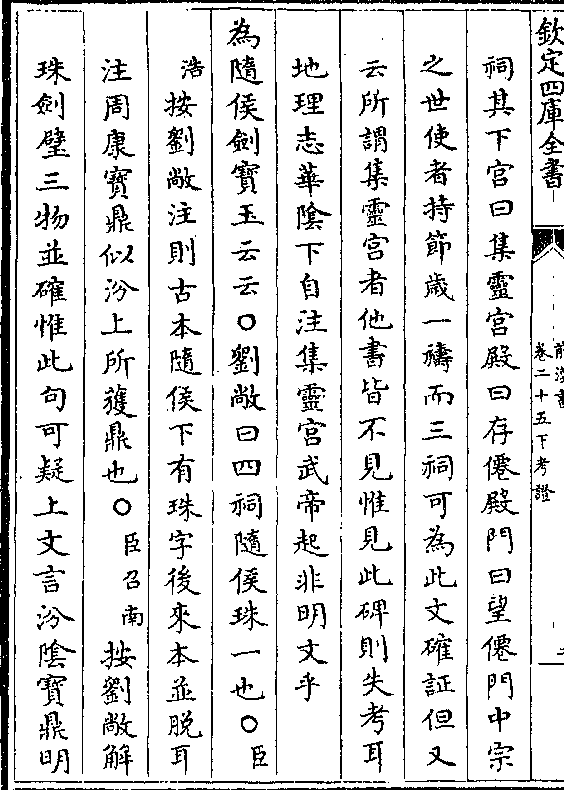 欽定四庫全書
前漢書
卷二十五下考證
祠其下宮曰集靈宮殿曰存僊殿門曰望僊門中宗
之世使者持節歲一禱而三祠可為此文確証但又
云所謂集靈宮者他書皆不見惟見此碑則失考耳
地理志華陰下自注集靈宮武帝起非明文乎
為隨侯劍寶玉云云○劉敞曰四祠隨侯珠一也○臣
浩按劉敞注則古本隨侯下有珠字後來本並脫耳
注周康寶鼎似汾上所獲鼎也○臣召南按劉敞解
珠劍璧三物並確惟此句可疑上文言汾陰寶鼎明